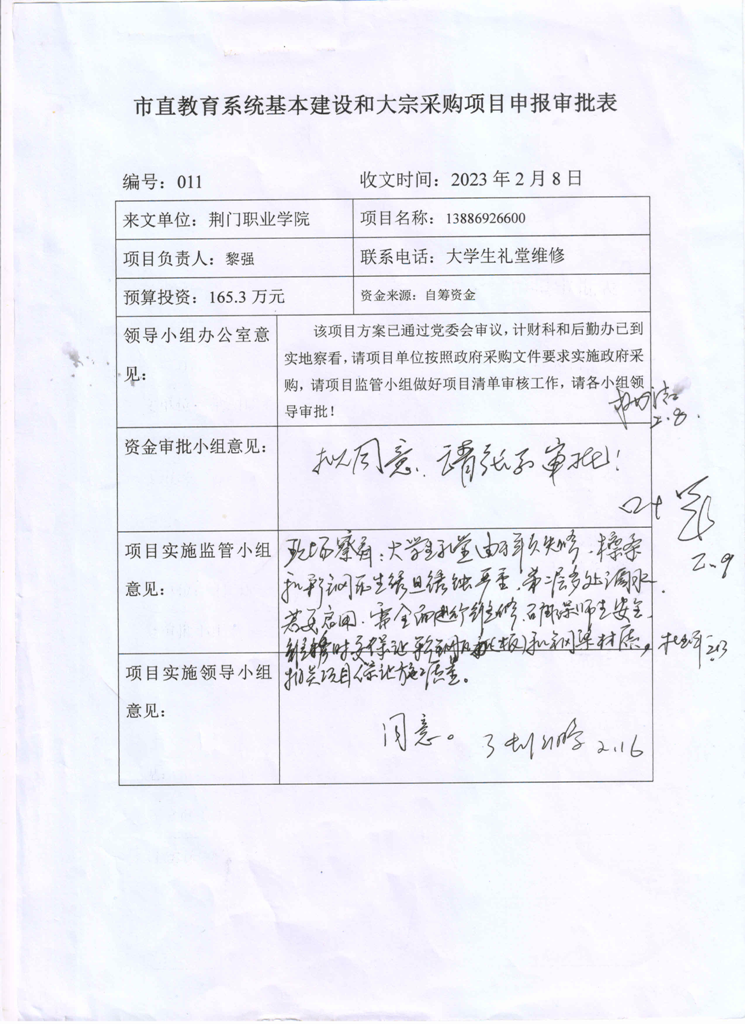 市直教育系统基本建设和大宗采购项目申报审批表
编号：011 收文时间：2023 年 2 月 8 日
来文单位：荆门职业学院 项目名称：13886926600
项目负责人：黎强 联系电话：大学生礼堂维修
预算投资：165.3 万元 资金来源：自筹资金
领导小组办公室意见：
该项目方案已通过党委会审议，计财科和后勤办已到
实地察看，请项目单位按照政府采购文件要求实施政府采
购，请项目监管小组做好项目清单审核工作，请各小组领
导审批！
2.8.
资金审批小组意见：
拟同意，请 审批！
叶
2.9
项目实施监管小组
意见：
现场察看：大学生礼堂由于年久失修，檩条
和彩钢瓦生锈且锈蚀严重，第二层多处漏水，
若要启用，需全面进行维修，以确保师生安全
维修时要保证 和钢梁材质， 2.13
项目实施领导小组
意见：
保证施工质量。
同意。 2.16